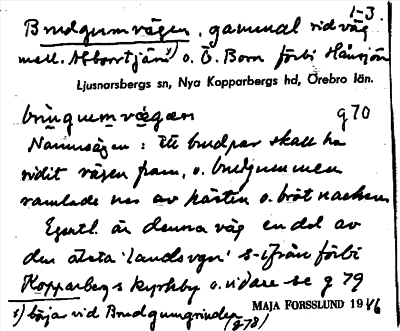 1-3.
Brudgumvägen, gammal ridväg
mell. Abborrtjärn¹) o. Ö. Born förbi Håvsjön
Ljusnarsbergs sn, Nya Kopparbergs hd, Örebro län.
brùŋgumvægan g 70
Namnsägen: Ett brudpar skall ha
ridit vägen fram, o. brudgummen
ramlade ner av hästen o. bröt nacken.
Egentl. är denna väg en del av
den älsta 'landsvgn' s-ifrån förbi
Kopparbergs kyrkby o. vidare se g 79
¹) börjar vid Brudgumgrinden
(g 78)
MAJA FORSSLUND 1946